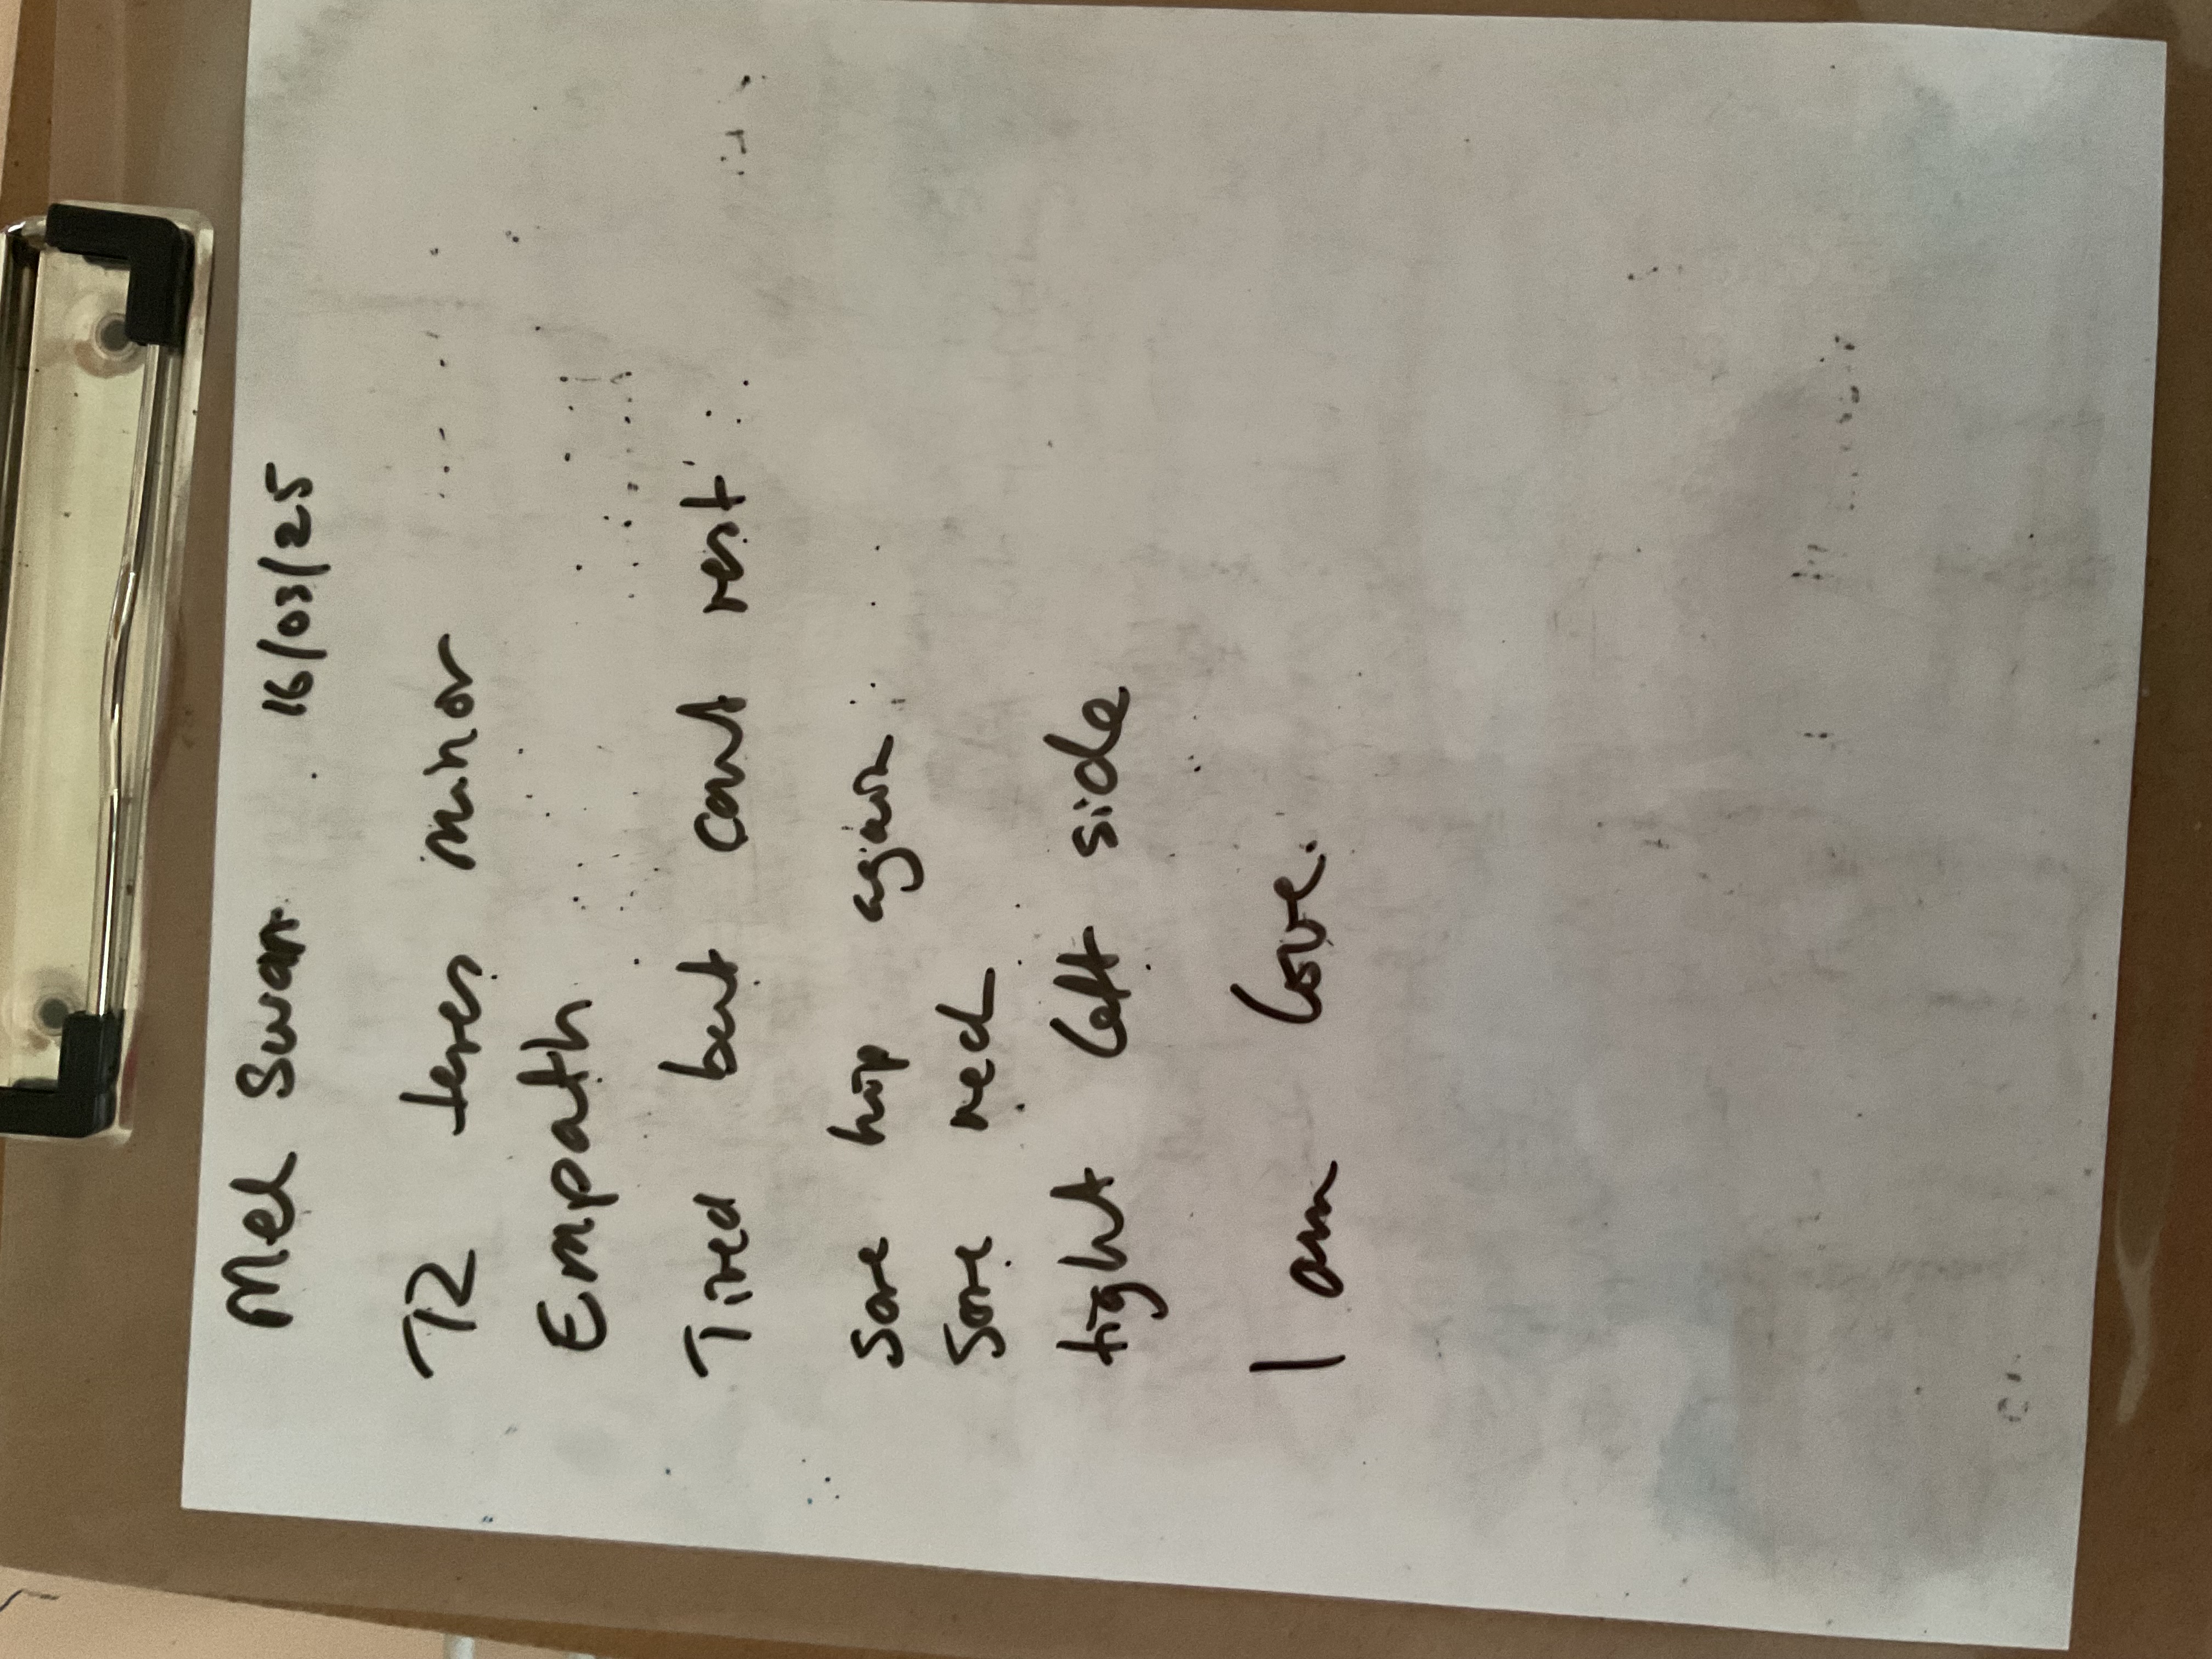 Mel Swan 16/03/25
T2 teres minor
Empath
Tired but cant rest
Sore hip again
Sore neck
tight left side
I am love.